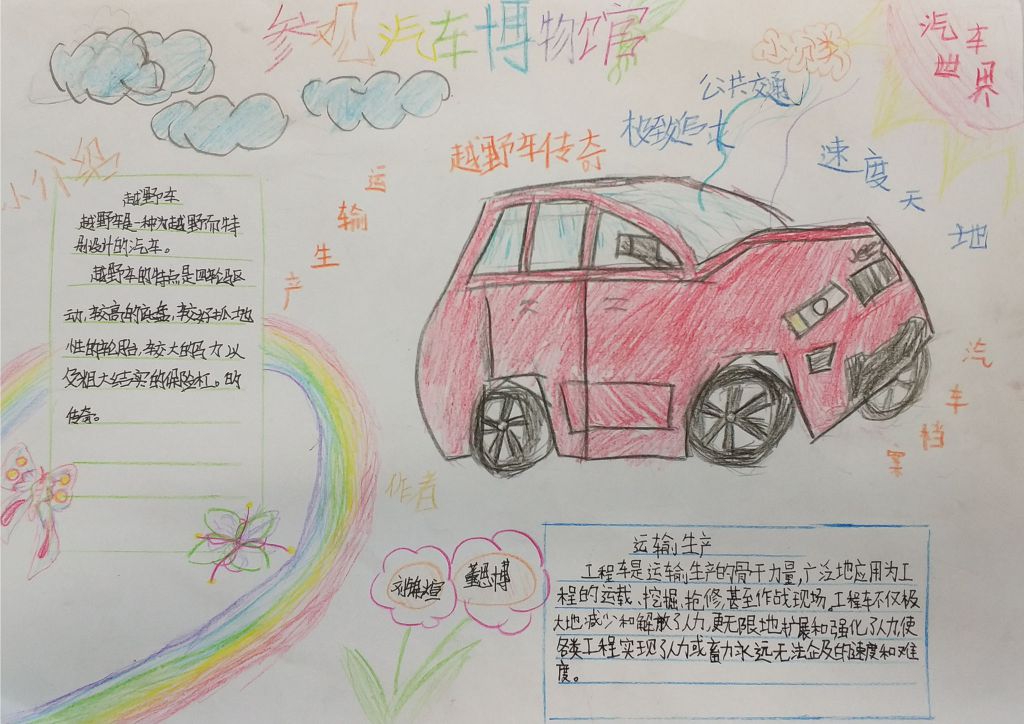 参观汽车博物馆
汽车
世界
公共交通
极致追求
越野车传奇
速度天地
小介绍
运输生产
越野车
越野车是一种为越野而特
别设计的汽车。
越野车的特点是四轮驱
动,较高的底盘,较好抓地
性的轮胎,较大的马力以
及粗大结实的保险杠。的
传奇。
汽车档案
作者
董思博
运输生产
工程车是运输生产的骨干力量,广泛地应用为工
程的运载、挖掘、抢修,甚至作战现场。工程车不仅极
大地减少和解散了人力,更无限地扩展和强化了人力,使
各类工程实现了人力或畜力永远无法企及的速度和难
度。